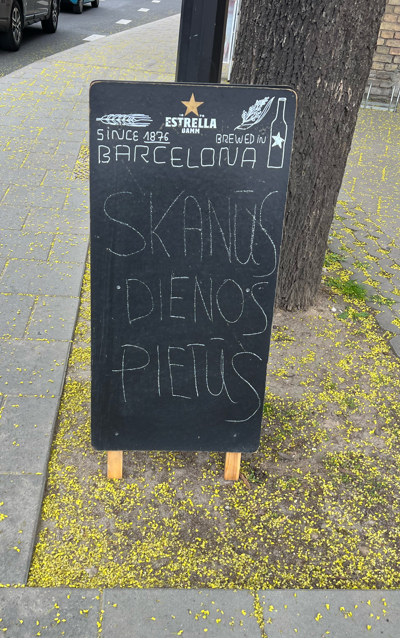 ESTRELLA
DAMM
SINCE 1876 BREWED IN
BARCELONA
SKANŪS
DIENOS
PIETŪS